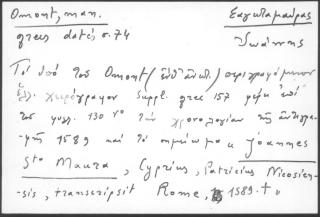 Omont, man. Σαγκταμαύρας
grecs datés σ. 74 Ἰωάννης
Τὸ ὑπὸ τοῦ Omont (ἔνθ' ἀνωτ.) περιγραφόμενον
ἑλλ. χειρόγραφον Suppl. grec 157 φέρει ἐπὶ
τοῦ φυλλ. 130 vo τὴν χρονολογίαν τῆς ἀντιγρα-
φῆς 1589 καὶ τὸ σημείωμα «Joannes
Sta Maura, Cyprius, Patricius Nicosien-
sis, transcripsit Rome, 1589. †»